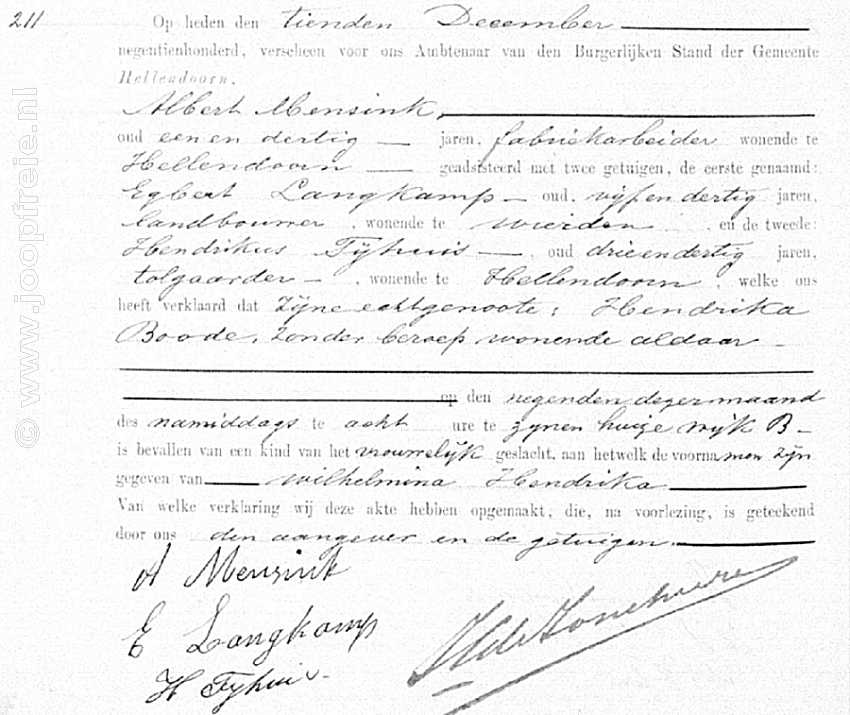 211 Op heden den tienden December
negentienhonderd, verscheen voor ons Ambtenaar van den Burgerlijken Stand der Gemeente
Hellendoorn.
Albert Mensink,
oud een en dertig jaren, fabriekarbeider wonende te
Hellendoorn geadsisteerd met twee getuigen, de eerste genaamd:
Egbert Langkamp oud, vijf en dertig jaren,
landbouwer, wonende te Wierden en de tweede:
Hendrikus Tijhuis, oud drieendertig jaren,
tolgaarder, wonende te Hellendoorn, welke ons
heeft verklaard dat zijne echtgenoote: Hendrika
Boode, zonder beroep wonende aldaar
op den negenden dezer maand
des namiddags te acht ure te zijnen huize wijk B
is bevallen van een kind van het vrouwelijk geslacht, aan hetwelk de voornamen zijn
gegeven van Wilhelmina Hendrika
Van welke verklaring wij deze akte hebben opgemaakt, die, na voorlezing, is geteekend
door ons den aangever en de getuigen.
A Mensink
E Langkamp
H Tyhuis
© www.joopfreie.nl